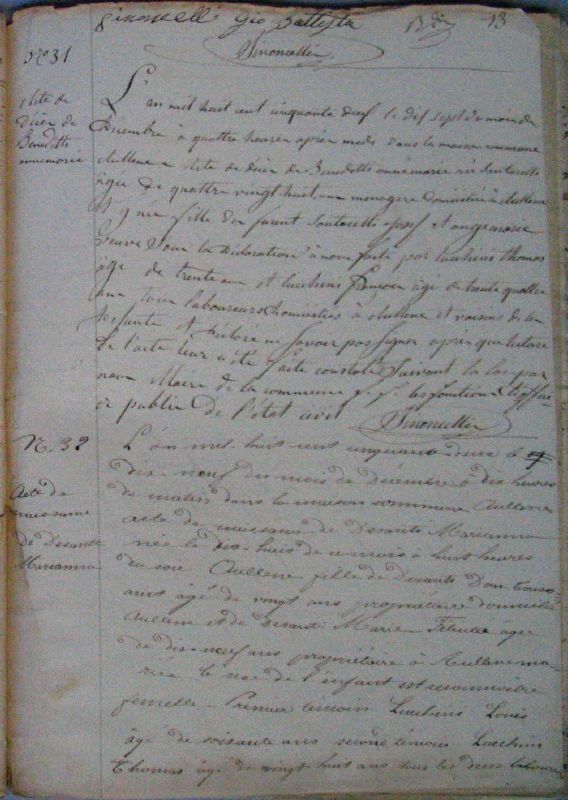 Simoncelli Gio Battista 13
Simoncelli
N° 31
Acte de
décès de
Benedetti
annemarie
L'an mil huit cent cinquante deux le dix sept du mois de
Décembre à quattre heures après midi dans la maison commune
d'aullene acte de décès de Benedetti annemarie née Santarelli
âgée de quattre vingt huit ans menagere domiciliée à aullene
et y née fille des
veuve Sur la Déclaration à nous faite par lucchini thomas
âgé de trente ans et lucchini françois âgé de trente quattre
ans tous laboureurs domiciliés à aullene et voisins de la
et Déclaré ne savoir pas signer apres que lecture
de l'acte leur a été faite constaté Suivant la loi par
nous Maire de la commune f. f. les fonctions d'offici-
er public De l'état civil Simoncelli
N. 32
Acte de
naissance
De Desanti
Mariamna
L'an mil huit cent cinquante deux le
dix-neuf du mois de décembre à dix heures
du matin dans la maison commune Aullene
acte de naissance de Desanti Mariamna
née le dix-huit du mois à huit heures
du soir Aullene fille de Desanti Don Touss-
aint âgé de vingt ans propriétaire domicilié
Aullene et de Desanti Marie âgée
de dix-neuf ans propriétaire à Aullene ma-
riée le sexe de l'enfant est reconnu être
femelle. Premier temoin Lucchini Louis
âgé de soixante ans second témoin Lucchini
Thomas âgé de vingt huit ans tous les deux laboureurs